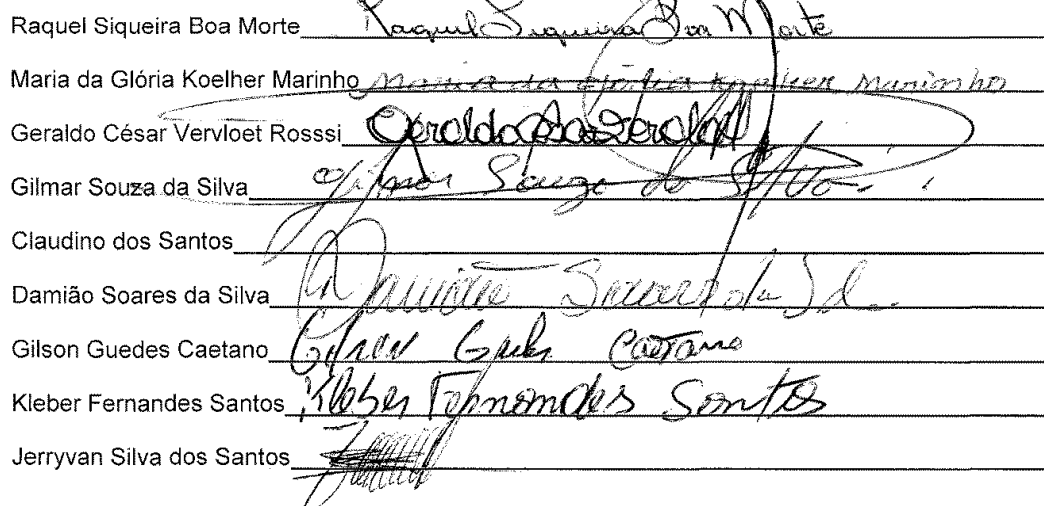 Raquel Siqueira Boa Morte Raquel Siqueira Boa Morte
Maria da Glória Koelher Marinho Maria da Glória Koelher Marinho
Geraldo César Vervloet Rosssi Geraldo
Gilmar Souza da Silva Gilmar Souza da Silva
Claudino dos Santos
Damião Soares da Silva Damião Soares da Sil
Gilson Guedes Caetano Gilson Guedes Caetano
Kleber Fernandes Santos Kleber Fernandes Santos
Jerryvan Silva dos Santos